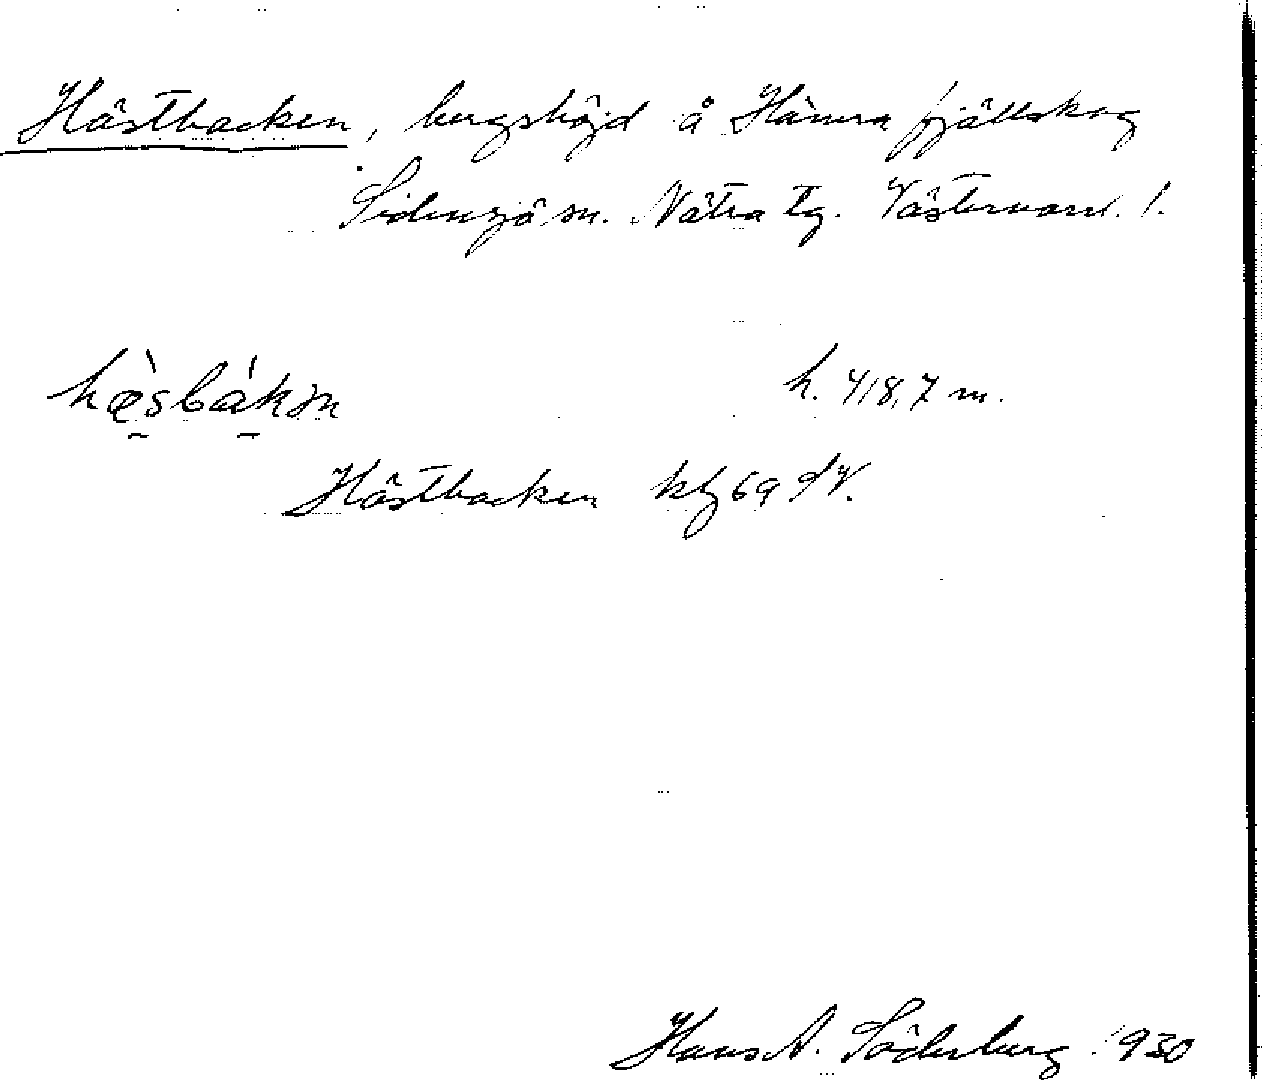 Hästbacken, bergshöjd å Hämra fjällskog
Sidensjö sn. Nätra tg. Västernorrl. l.
hæ̀sbákɜn h. 418,7 m.
Hästbacken kbl 69 SV.
Hans A. Söderberg 1930